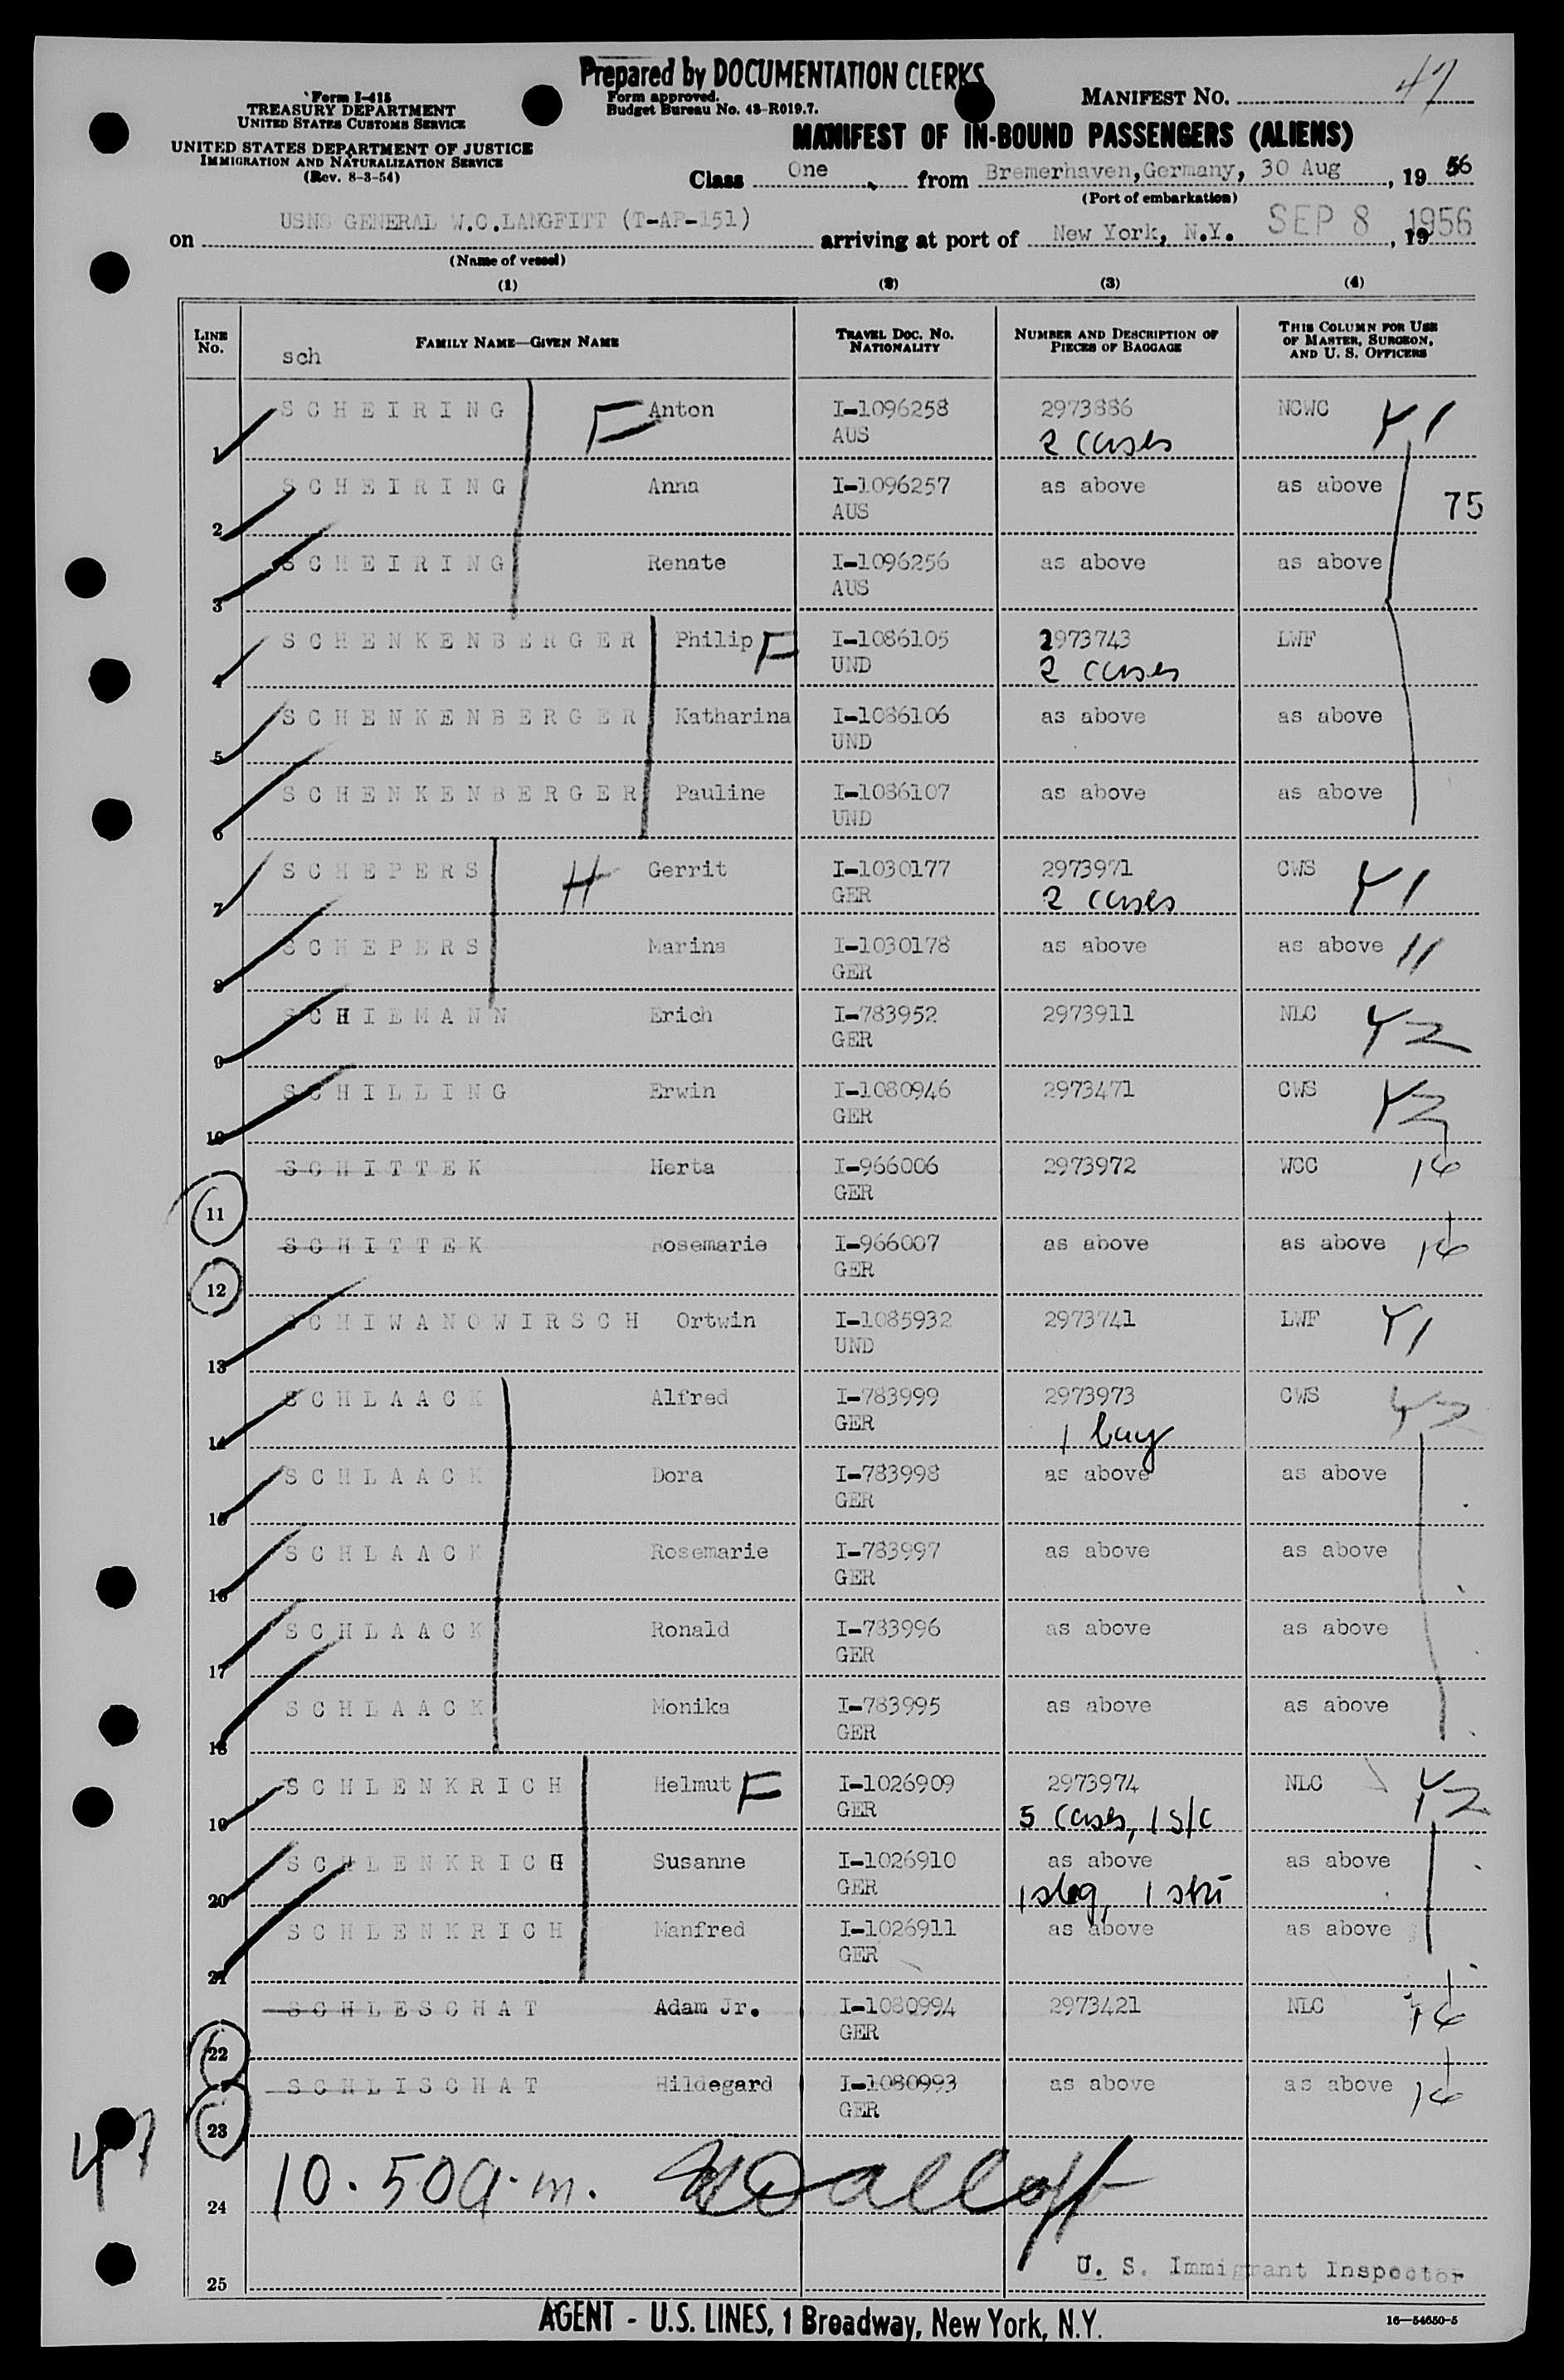 Prepared by DOCUMENTATION CLERKS
Form I-418
TREASURY DEPARTMENT
UNITED STATES CUSTOMS SERVICE
UNITED STATES DEPARTMENT OF JUSTICE
IMMIGRATION AND NATURALIZATION SERVICE
(Rev. 8-3-54)
Form approved.
Budget Bureau No. 43-R019.7.
MANIFEST NO. 47
MANIFEST OF IN-BOUND PASSENGERS (ALIENS)
Class One from Bremerhaven, Germany, 30 Aug, 19 56
(Port of embarkation)
on USNS GENERAL W.C.LANGFITT (T-AP-151) arriving at port of New York, N.Y. SEP 8 1956, 19
(Name of vessel)
(1) (2) (3) (4)
LINE NO. FAMILY NAME—GIVEN NAME TRAVEL DOC. NO. NATIONALITY NUMBER AND DESCRIPTION OF PIECES OF BAGGAGE THIS COLUMN FOR USE OF MASTER, SURGEON, AND U. S. OFFICERS
sch
1 SCHEIRING F Anton I-1096258 2973886 NCWC Y1
AUS 2 cases
2 SCHEIRING Anna I-1096257 as above as above 75
AUS
3 SCHEIRING Renate I-1096256 as above as above
AUS
4 SCHENKENBERGER Philip F I-1086105 2973743 LWF
UND 2 cases
5 SCHENKENBERGER Katharina I-1086106 as above as above
UND
6 SCHENKENBERGER Pauline I-1086107 as above as above
UND
7 SCHEPERS H Gerrit I-1030177 2973971 CWS Y1
GER 2 cases
8 SCHEPERS Marina I-1030178 as above as above 11
GER
9 SCHIEMANN Erich I-783952 2973911 NLC Y2
GER
10 SCHILLING Erwin I-1080946 2973471 CWS Y2
GER
11 SCHITTEK Herta I-966006 2973972 WCC
GER
12 SCHITTEK Rosemarie I-966007 as above as above
GER
13 SCHIWANOWIRSCH Ortwin I-1085932 2973741 LWF Y1
UND
14 SCHLAACK Alfred I-783999 2973973 CWS Y2
GER 1 bag
15 SCHLAACK Dora I-783998 as above as above
GER
16 SCHLAACK Rosemarie I-783997 as above as above
GER
17 SCHLAACK Ronald I-783996 as above as above
GER
18 SCHLAACK Monika I-783995 as above as above
GER
19 SCHLENKRICH Helmut F I-1026909 2973974 NLC Y2
GER 5 cases, 1 s/c
20 SCHLENKRICH Susanne I-1026910 as above as above
GER
21 SCHLENKRICH Manfred I-1026911 as above as above
GER
22 SCHLESCHAT Adam Jr. I-1080994 2973421 NLC
GER
23 SCHLISCHAT Hildegard I-1080993 as above as above
GER
47
24 10.50 a.m.
25 U. S. Immigrant Inspector
AGENT - U.S. LINES, 1 Broadway, New York, N.Y.
16—54650-5